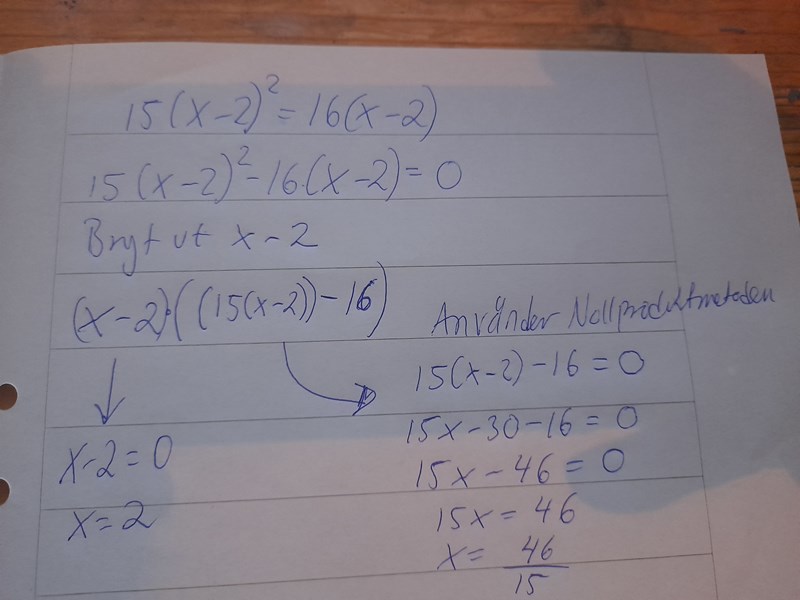 15(x-2)² = 16(x-2)
15(x-2)² - 16·(x-2) = 0
Bryt ut x - 2
(x-2)·((15(x-2)) - 16)
Använder Nollproduktmetoden
15(x-2) - 16 = 0
15x - 30 - 16 = 0
15x - 46 = 0
15x = 46
x = 46/15
x - 2 = 0
x = 2